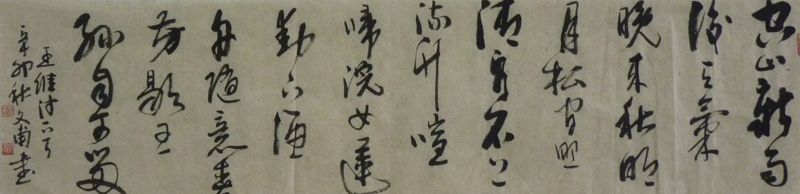 空山新雨
後天氣
晚来秋明
月松間照
清泉石上
流竹喧
歸浣女蓮
動下漁
舟隨意春
芳歇王
孫自可留
王維詩一首
辛卯秋文甫書